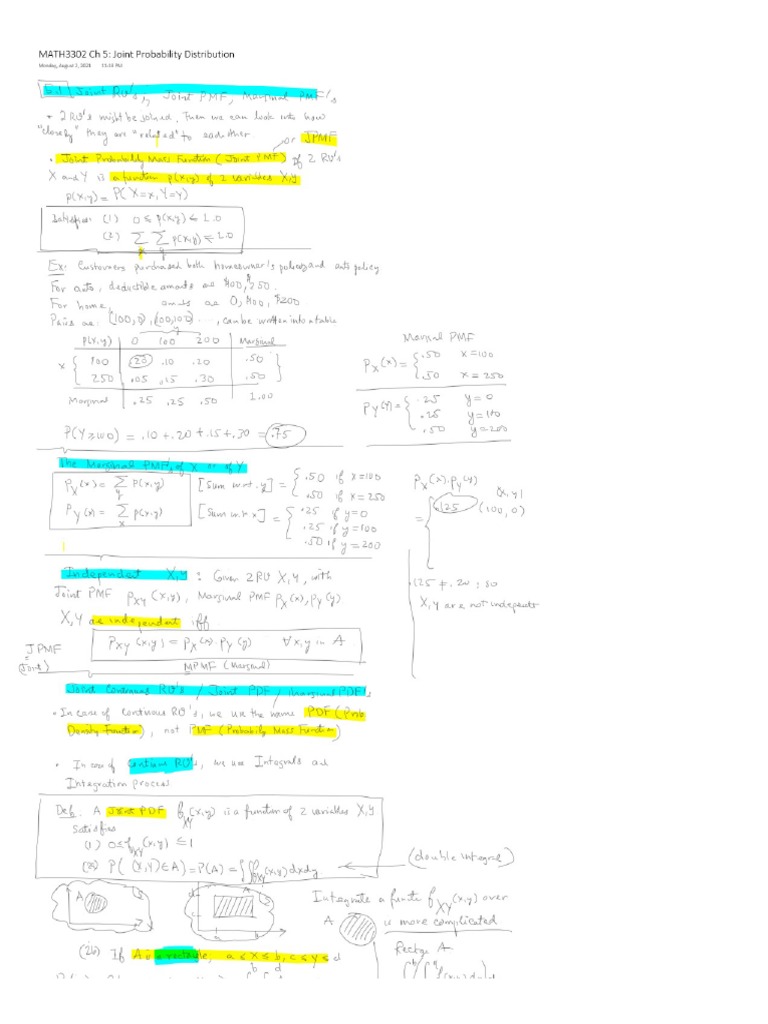 MATH3302 Ch 5: Joint Probability Distribution
Monday, August 2, 2021
5.1 Joint RV's, Joint PMF, Marginal PMF's
• 2 RV's might be solved, Then we can look into how
"closely" they are "related" to eachother.
or JPMF
• Joint Probability Mass Function (Joint PMF) of 2 RV's
X and Y is a function p(x,y) of 2 variables X,Y
p(x,y) = P(X=x, Y=y)
Satisfies: (1) 0 ≤ p(x,y) ≤ 1.0
(2) ∑ ∑ p(x,y) = 1.0
x y
Ex: Customers purchased both homeowner's policy and auto policy
For auto, deductible amounts are $100, 250.
For home, amts are 0, $100, $200
Pairs are: (100,0), (100,100) ..., can be written into a table
y
p(x,y) 0 100 200 Marginal
x 100 .20 .10 .20 .50
250 .05 .15 .30 .50
Marginal .25 .25 .50 1.00
P(Y≥100) = .10 + .20 + .15 + .30 = .75
Marginal PMF
Px(x) = { .50 x=100
.50 x=250
Py(y) = { .25 y=0
.25 y=100
.50 y=200
The Marginal PMF's of X or of Y
Px(x) = ∑ p(x,y) [Sum w.r.t. y] = { .50 if x=100
y .50 if x=250
Py(y) = ∑ p(x,y) [Sum w.r.t. x] = { .25 if y=0
x .25 if y=100
.50 if y=200
Px(x)·Py(y)
(x,y)
= { .125 (100,0)
.125 ≠ .20 : so
X,Y are not independent
Independent X,Y : Given 2 RV X,Y, with
Joint PMF Pxy(x,y), Marginal PMF Px(x), Py(y)
X,Y are independent iff
JPMF Pxy(x,y) = Px(x) Py(y) ∀ x,y in A
(Joint) MPMF (Marginal)
Joint Continuous RV's / Joint PDF / Marginal PDF's
• In case of continuous RV's, we use the name PDF (Prob
Density Function), not PMF (Probability Mass Function)
• In case of continuous RV's, we use Integrals and
Integration process
Def. A Joint PDF fxy(x,y) is a function of 2 variables X,Y
satisfies
(1) 0 ≤ fxy(x,y) ≤ 1
(2a) P((X,Y)∈A) = P(A) = ∫∫ fxy(x,y) dxdy
(double integral)
A
A
d
c
Integrate a function fxy(x,y) over
A is more complicated
(2b) If A is a rectangle, a ≤ X ≤ b, c ≤ Y ≤ d
b d